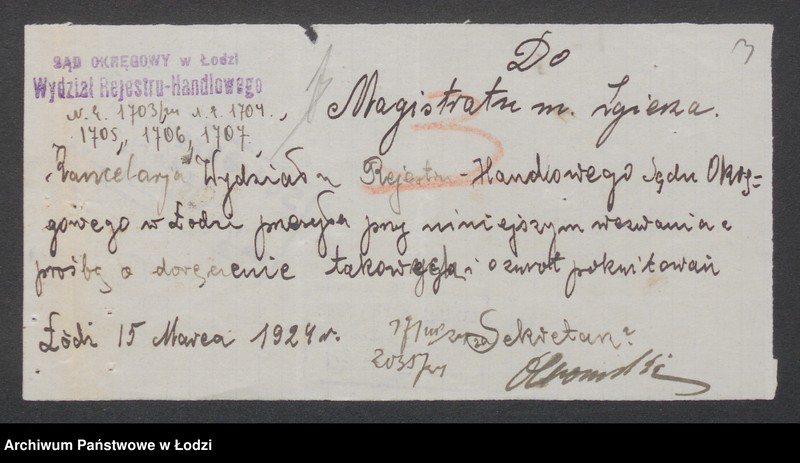 3
SĄD OKRĘGOWY w Łodzi
Wydział Rejestru-Handlowego
1703/ 1704,
1705, 1706, 1707
Do
Magistratu m. Zgierza.
Kancelarja Wydziału Rejestru-Handlowego Sądu Okrę-
gowego w Łodzi przesyła przy niniejszym wezwania z
prośbą o doręczenie takowych i zwrot pokwitowań
Łódź 15 Marca 1924 r.
Sekretarz
3
Archiwum Państwowe w Łodzi